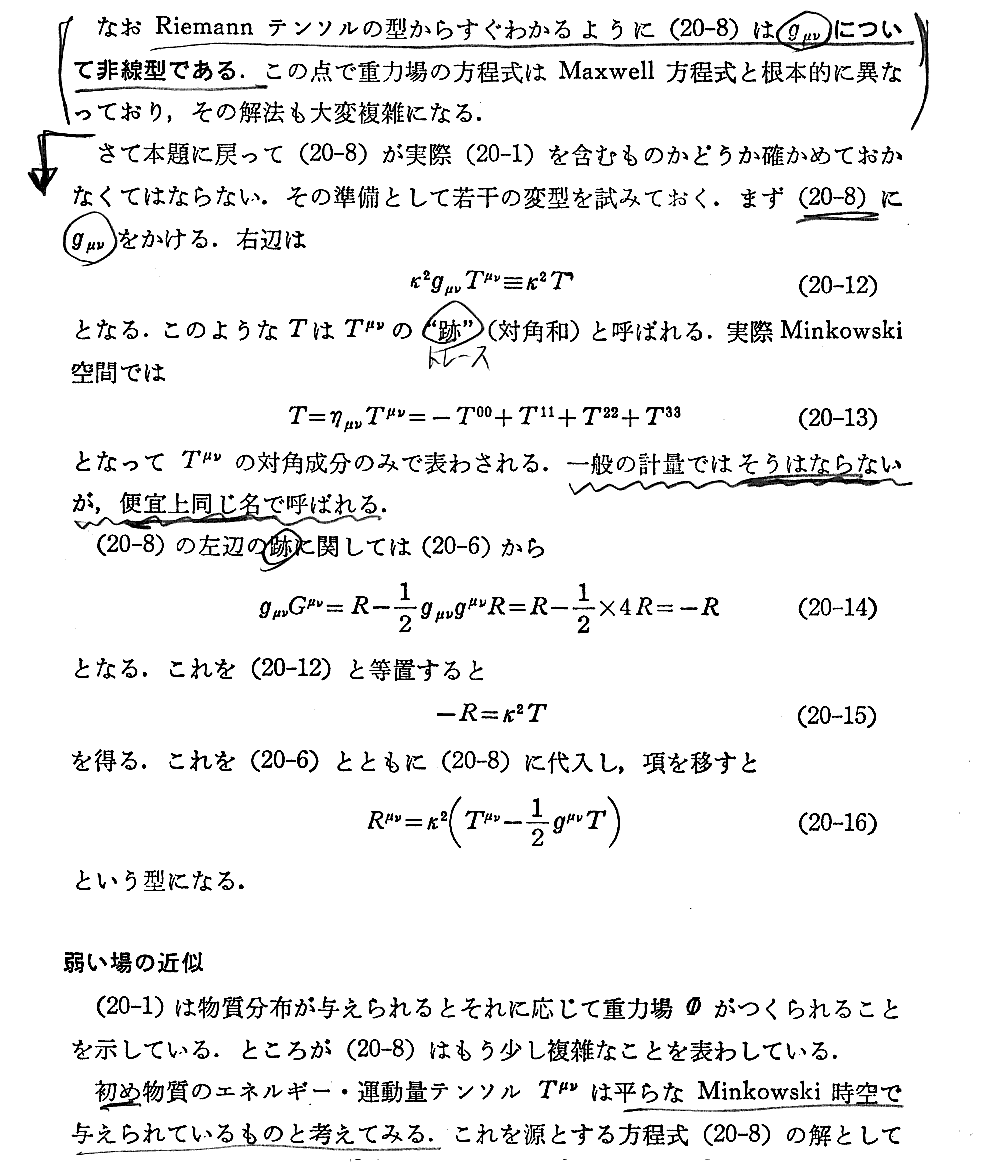 なお Riemann テンソルの型からすぐわかるように (20-8) は gμν につい
て非線型である．この点で重力場の方程式は Maxwell 方程式と根本的に異な
っており，その解法も大変複雑になる．
さて本題に戻って (20-8) が実際 (20-1) を含むものかどうか確かめておか
なくてはならない．その準備として若干の変型を試みておく．まず (20-8) に
gμν をかける．右辺は
κ²gμνTμν≡κ²T (20-12)
となる．このような T は Tμν の “跡” (対角和) と呼ばれる．実際 Minkowski
トレース
空間では
T=ημνTμν=−T⁰⁰+T¹¹+T²²+T³³ (20-13)
となって Tμν の対角成分のみで表わされる．一般の計量ではそうはならない
が，便宜上同じ名で呼ばれる．
(20-8) の左辺の跡に関しては (20-6) から
gμνGμν=R−1/2 gμνgμνR=R−1/2×4R=−R (20-14)
となる．これを (20-12) と等置すると
−R=κ²T (20-15)
を得る．これを (20-6) とともに (20-8) に代入し，項を移すと
Rμν=κ²(Tμν−1/2 gμνT) (20-16)
という型になる．
弱い場の近似
(20-1) は物質分布が与えられるとそれに応じて重力場 Φ がつくられること
を示している．ところが (20-8) はもう少し複雑なことを表わしている．
初め物質のエネルギー・運動量テンソル Tμν は平らな Minkowski 時空で
与えられているものと考えてみる．これを源とする方程式 (20-8) の解として